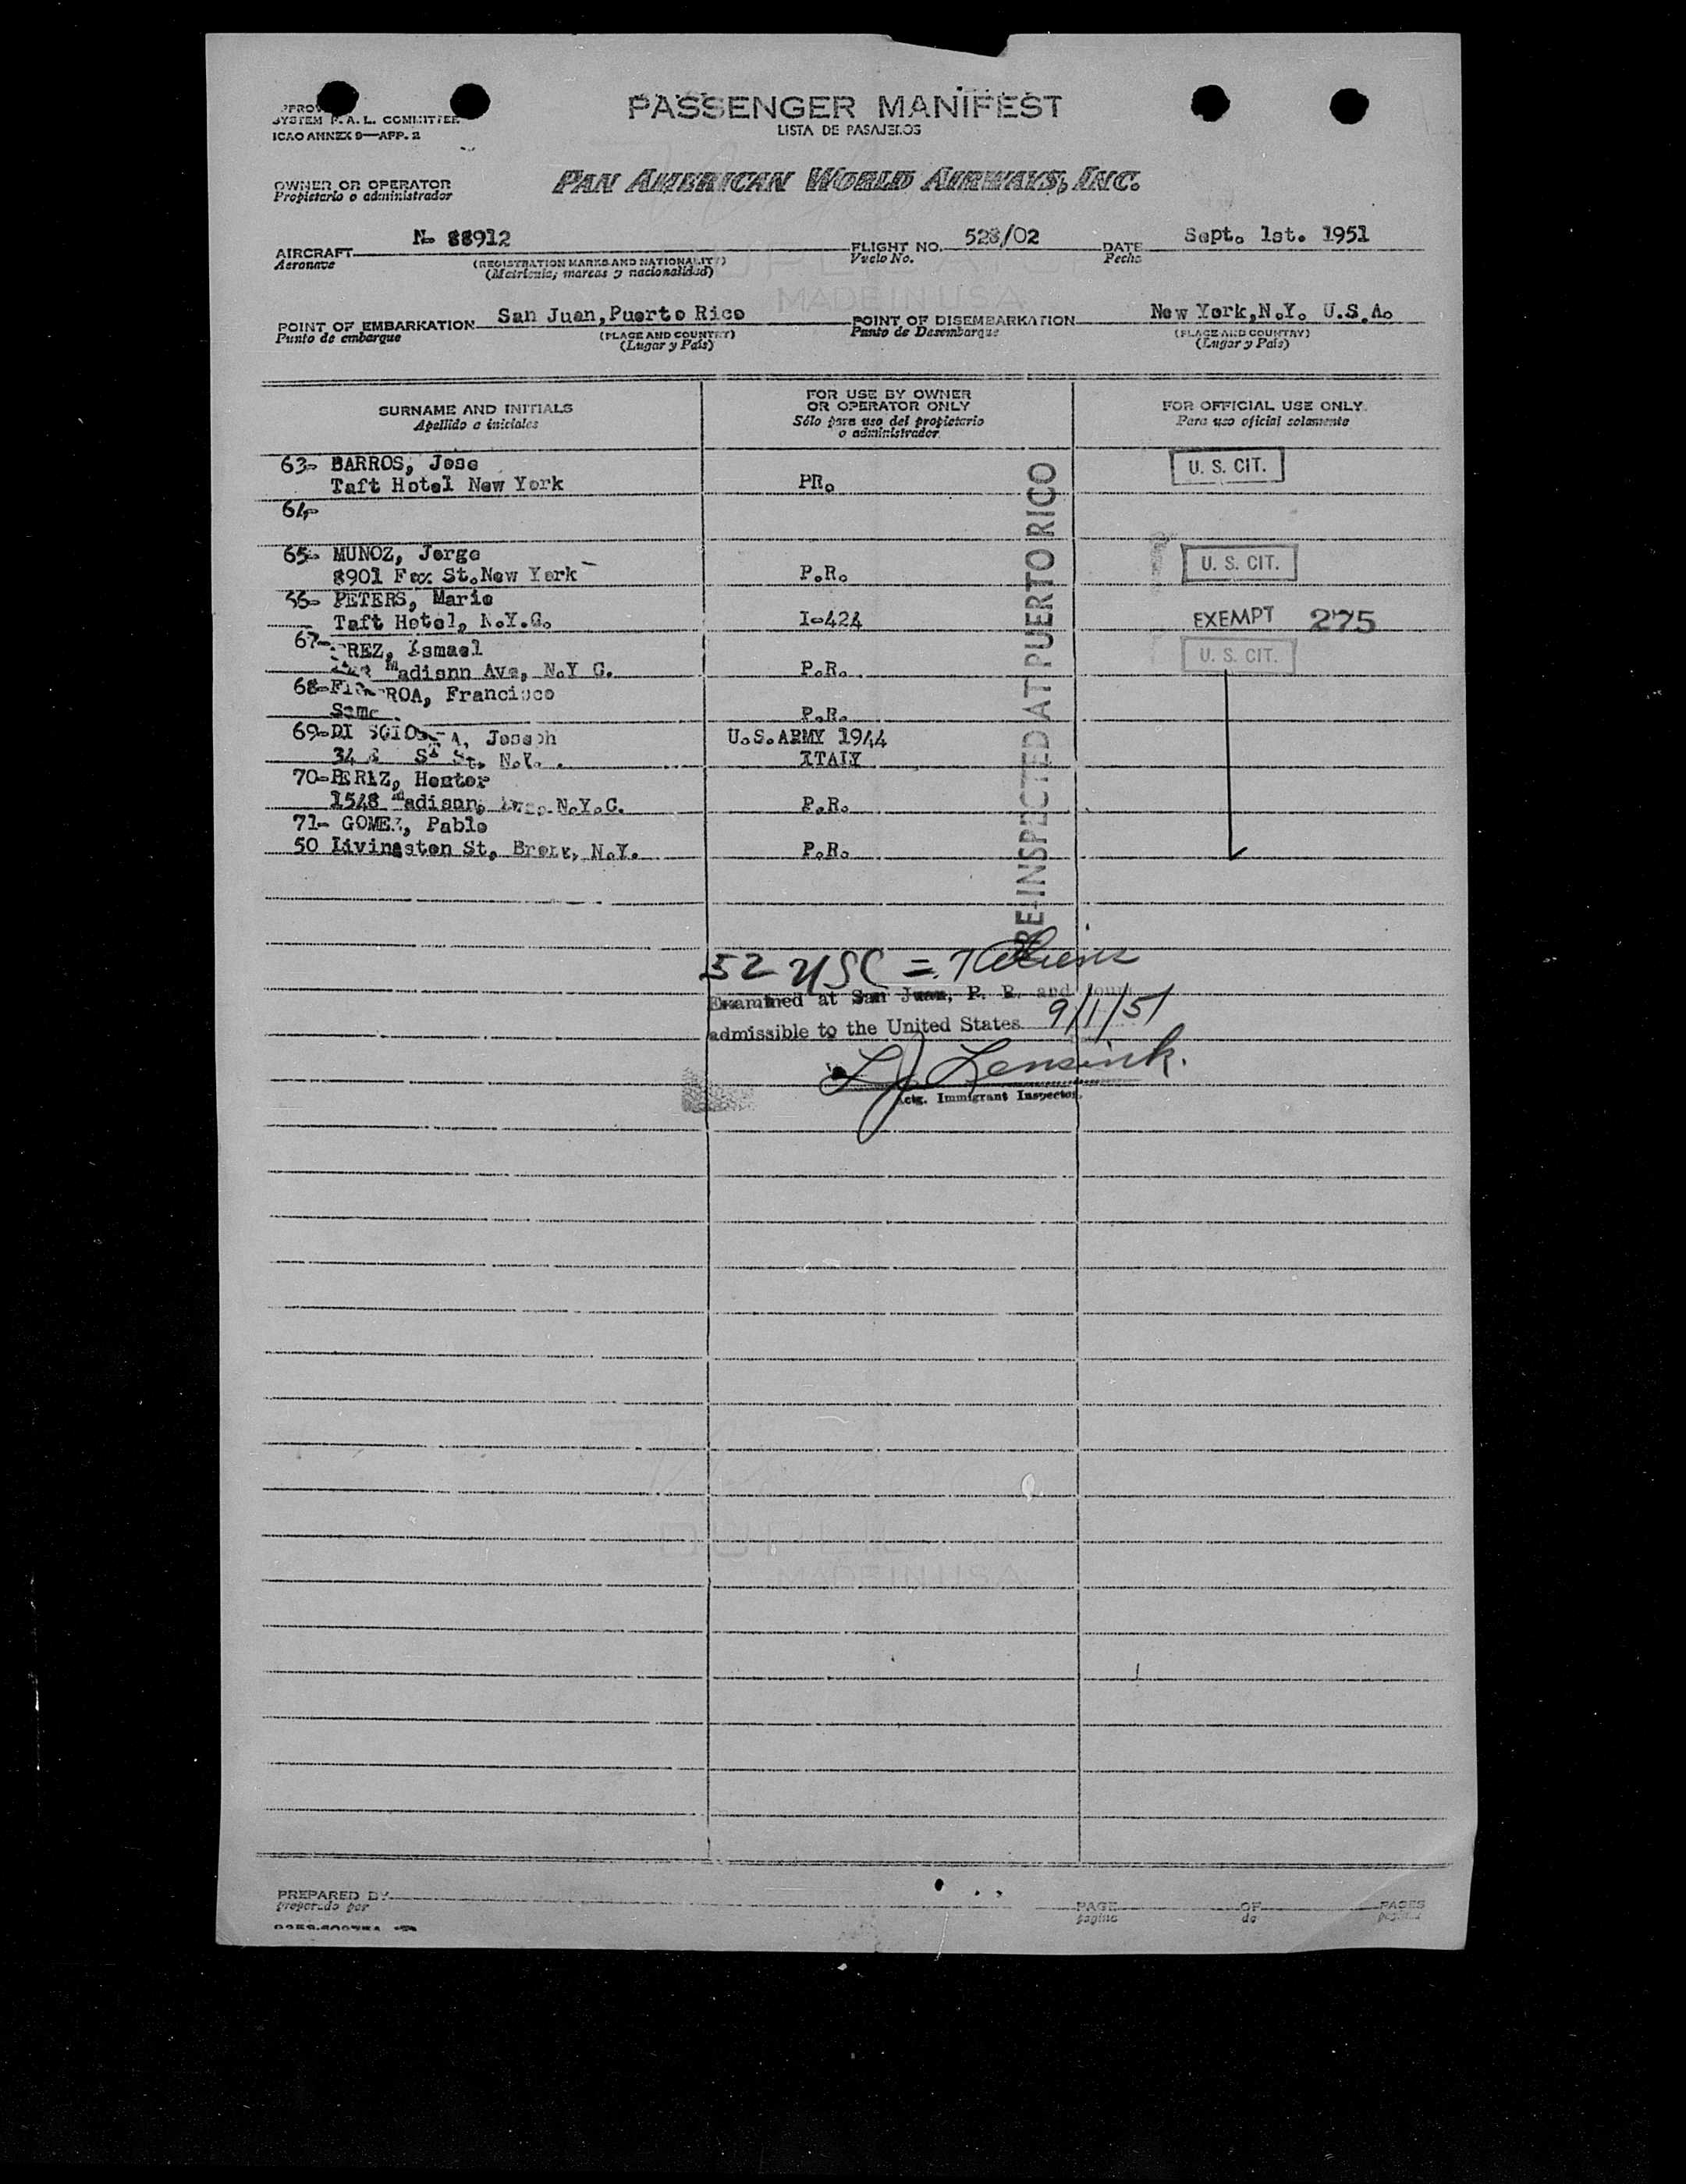 SYSTEM P. A. L. COMMITTEE
ICAO ANNEX 9—APP. 2
PASSENGER MANIFEST
LISTA DE PASAJEROS
OWNER OR OPERATOR
Propietario o administrador
PAN AMERICAN WORLD AIRWAYS, INC.
AIRCRAFT N- 88912 FLIGHT NO. 528/02 DATE Sept. 1st. 1951
Aeronave (REGISTRATION MARKS AND NATIONALITY) Vuelo No. Fecha
(Matricula, marcas y nacionalidad)
MADE IN USA
POINT OF EMBARKATION San Juan, Puerto Rico POINT OF DISEMBARKATION New York, N.Y. U.S.A.
Punto de embarque (PLACE AND COUNTRY) Punto de Desembarque (PLACE AND COUNTRY)
(Lugar y País) (Lugar y País)
SURNAME AND INITIALS FOR USE BY OWNER OR OPERATOR ONLY FOR OFFICIAL USE ONLY
Apellido e iniciales Sólo para uso del propietario o administrador Para uso oficial solamente
63- BARROS, Jose U. S. CIT.
Taft Hotel New York PR.
64-
65- MUNOZ, Jorge U. S. CIT.
8901 Fox St. New York P.R.
66- PETERS, Mario
Taft Hotel, N.Y.C. I-424 EXEMPT 275
67- Ismael U. S. CIT.
Ave, N.Y C. P.R.
68- Francisco
Same P.R.
69- DI Joseph U.S.ARMY 1944
St, N.Y. ITALY
70- PEREZ, Hector
1548 Madison, N.Y.C. P.R.
71- GOMEZ, Pablo
50 Livingston St, Bronx, N.Y. P.R.
PRE-INSPECTED AT PUERTO RICO
52 USC = 7 Aliens
Examined at San Juan, P. R. and found
admissible to the United States 9/1/51
L J Lensink.
Actg. Immigrant Inspector.
MADE IN USA
PREPARED BY PAGE OF PAGES
preparado por pagina de